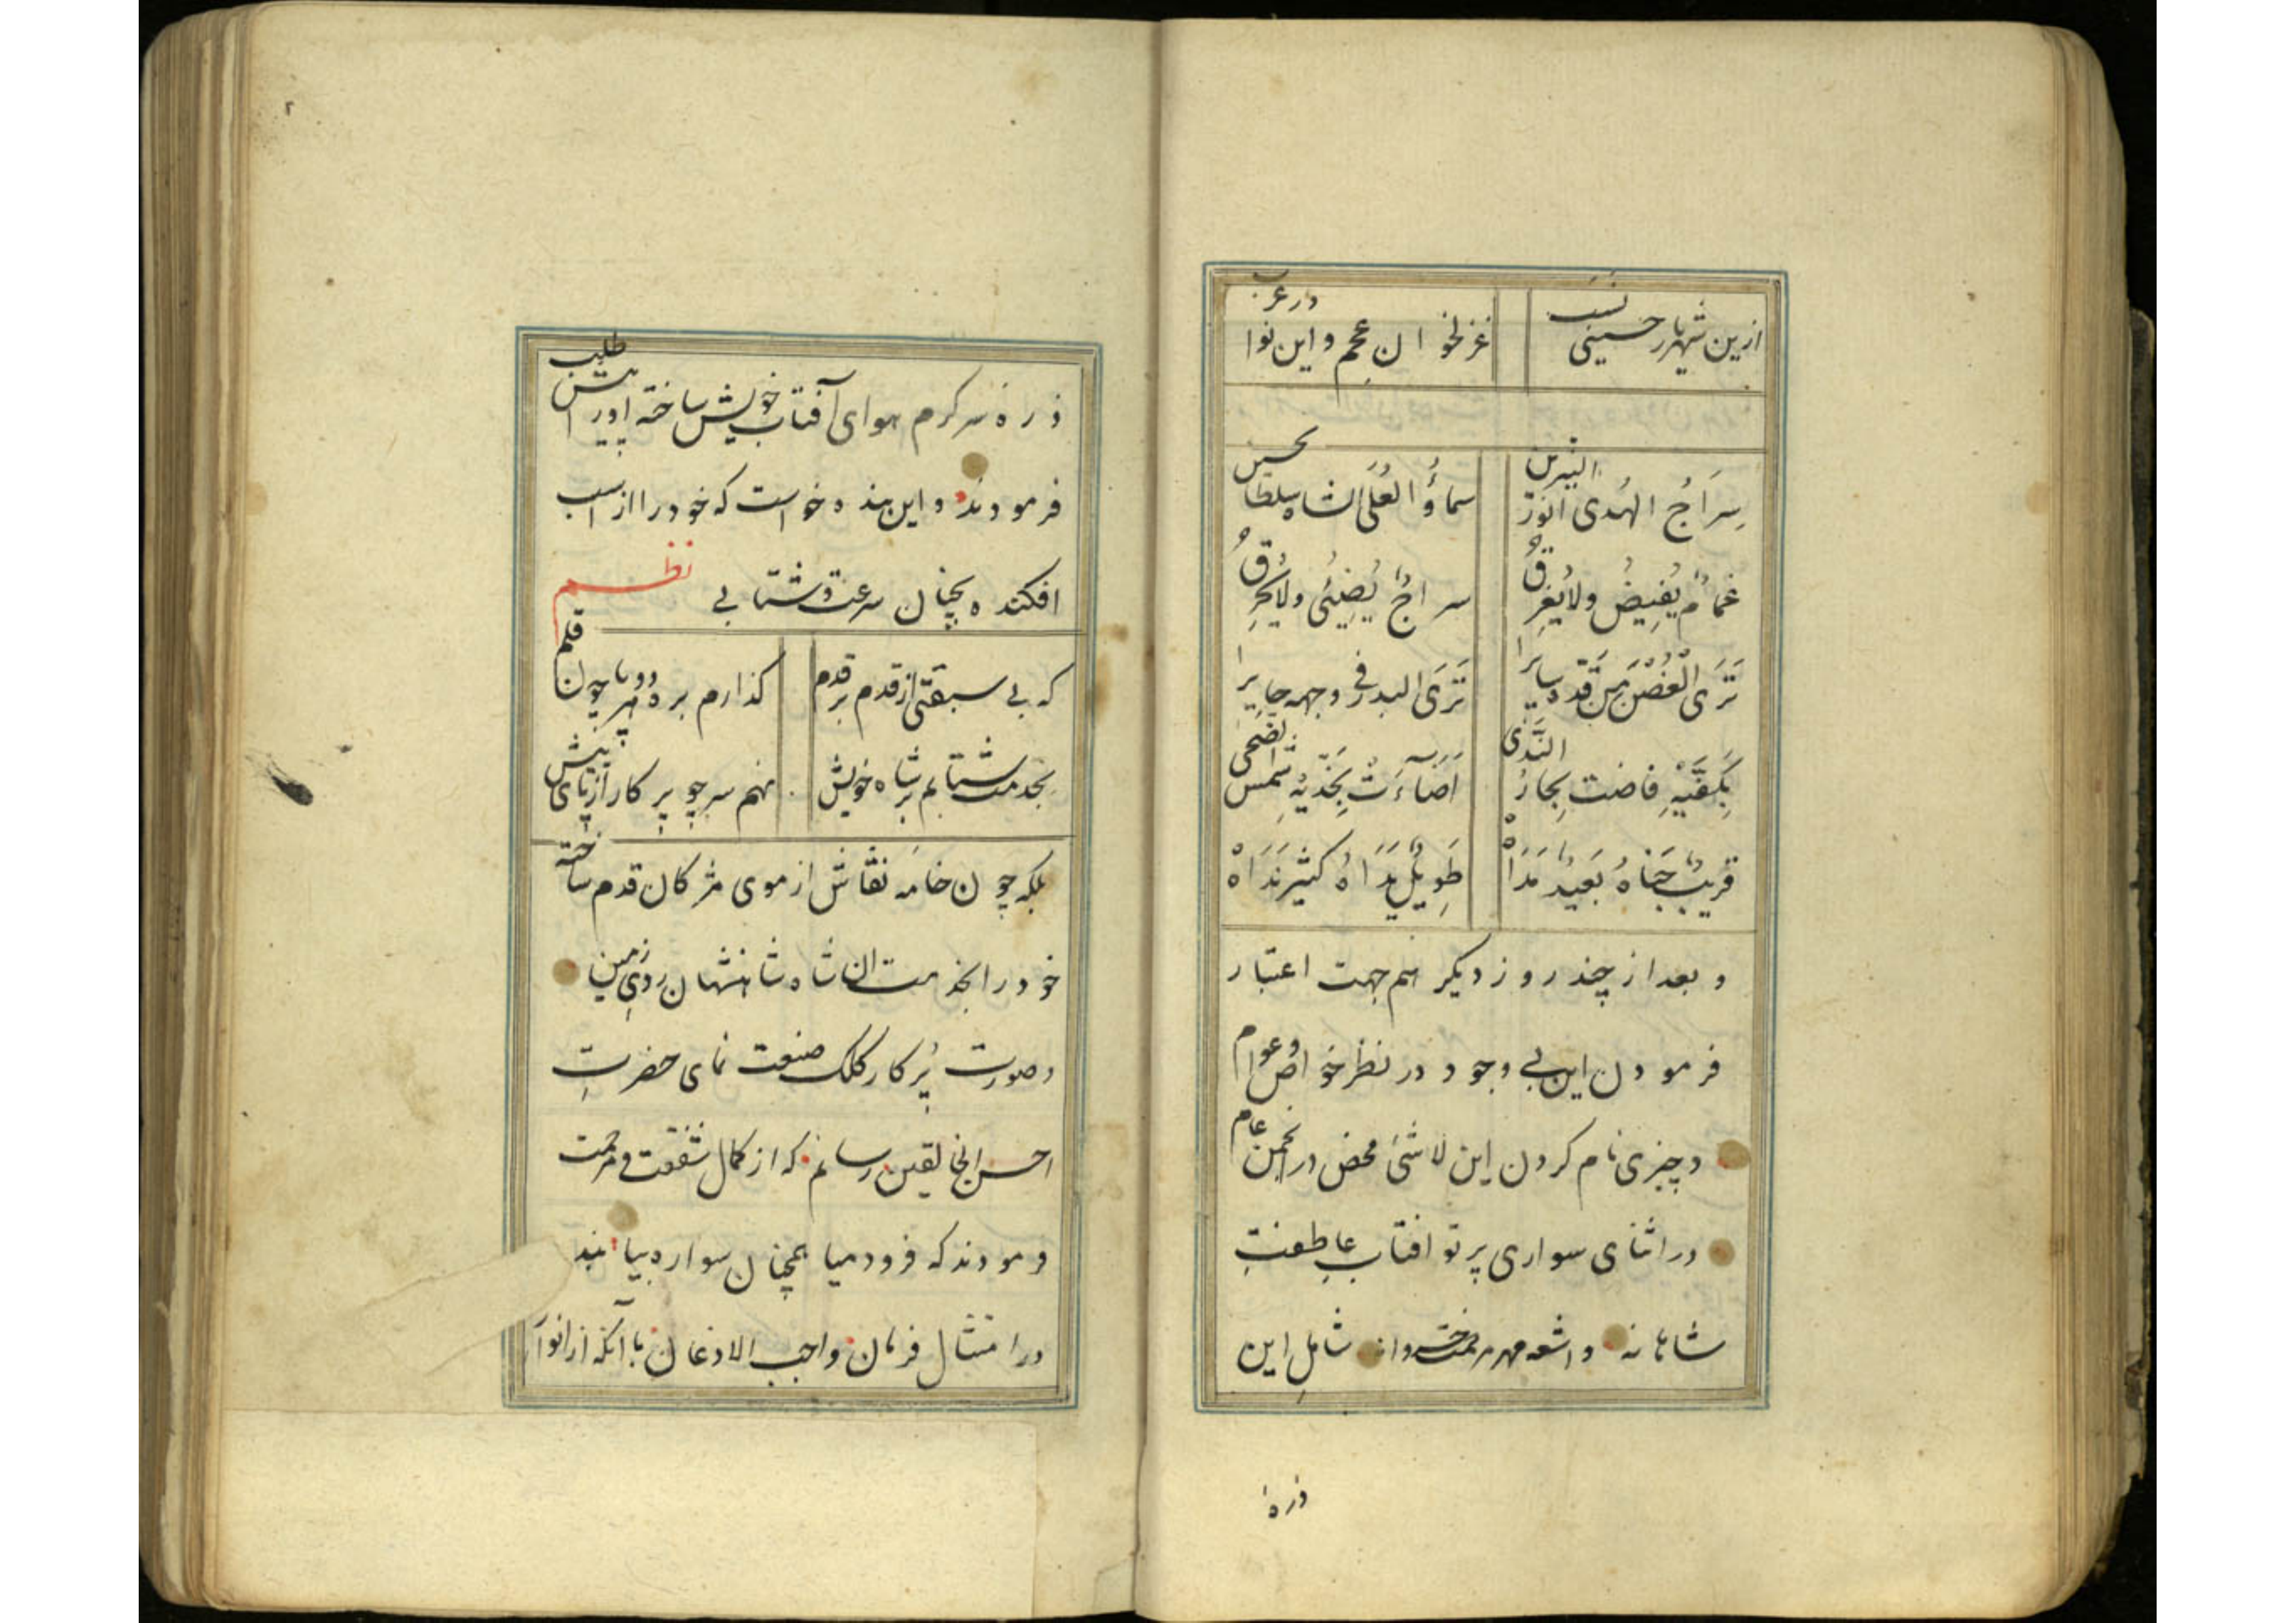 ازین شهریار حسینی نسب غزلخوان عجم و این نوا در عرب
سِرَاجُ الهُدی انوَرُ النیرین سماؤُ العُلَی الشاه سلطا حسین
غمامٌ یُفِیضُ ولا یُغرِقُ سراجٌ یُضِیئُی ولا یُحرِقُ
تَرَی الْغُصْنَ مِن قَدّه سایرا تَرَی البدر فی وجهه حایرا
بِکَفَّیْهِ فاضت بِحارُ النَّدَی اَضَآءَتْ بِخَدَّیهِ شمس الضحی
قریبٌ جَنَاهُ بَعِیدٌ مَدَاهْ طَوِیلٌ یَدَاهُ کثیر نَدَاهْ
و بعد از چند روز دیگر هم جهت اعتبار
فرمودن این بی وجود در نظر خواص و عوام
و چیزی نام کردن این لاشئ محض در انجمن عام
در اثنای سواری پرتو افتاب عاطفتِ
شاهانه و اشعه مهر مرحمت خسروانه شاملِ این
ذرهٔ
۲
ذره سرکرم هوای آفتاب خویش ساخته اوپر ا طلب
فرمودند و این بنده خواست که خود را از اسب
افکنده بچنان سرعت و شتابی نظم
که بی سبقتی از قدم بر قدم کذارم بره هر دو پا چون قلم
بخدمت شتابم بر شاه خویش نهم سر چو پرکار از پای پیش
بلکه چون خامه نقاش از موی مژکان قدم ساخته
خود را بخدمت ان شاه شاهنشهان رویِ زمین
و صورت پُرکار کلک صنعت نمای حضرتِ
احسن الخالقین رسانم که از کمال شفقت و مرحمت
فرمودند که فرود میا همچنان سواره بیا بنده
در امتثال فرمان واجب الاذعان با آنکه از انوار